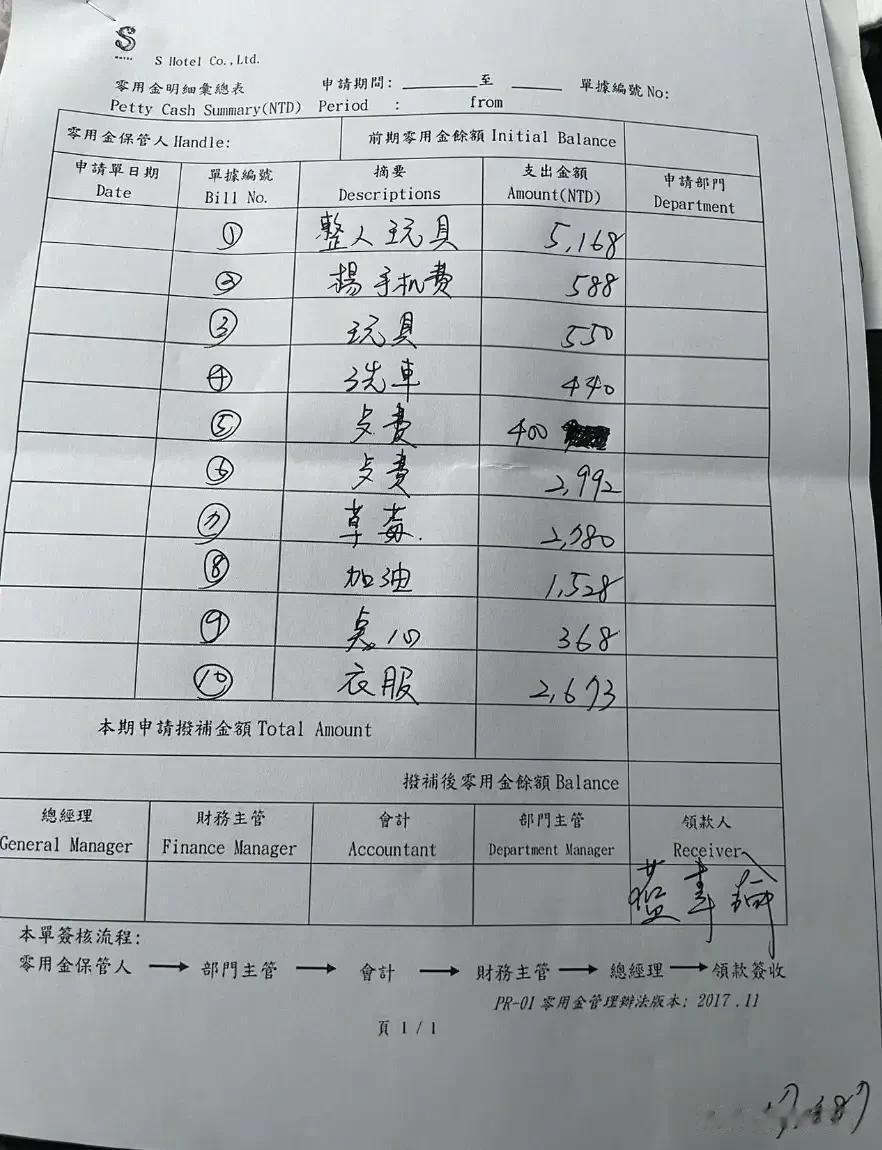 S
HOTEL
S Hotel Co.,Ltd.
零用金明細彙總表 申請期間: 至 單據編號 No:
Petty Cash Summary(NTD) Period : from
零用金保管人 Handle: 前期零用金餘額 Initial Balance
申請單日期 單據編號 摘要 支出金額 申請部門
Date Bill No. Descriptions Amount(NTD) Department
① 整人玩具 5,168
② 楊手机費 588
③ 玩具 550
④ 洗車 440
⑤ 費 400
⑥ 費 2,992
⑦ 草莓. 2,780
⑧ 加油 1,528
⑨ 點心 368
⑩ 衣服 2,673
本期申請撥補金額 Total Amount
撥補後零用金餘額 Balance
總經理 財務主管 會計 部門主管 領款人
General Manager Finance Manager Accountant Department Manager Receiver
本單簽核流程:
零用金保管人 → 部門主管 → 會計 → 財務主管 → 總經理 → 領款簽收
PR-01 零用金管理辦法版本: 2017.11
頁 1 / 1
17,487